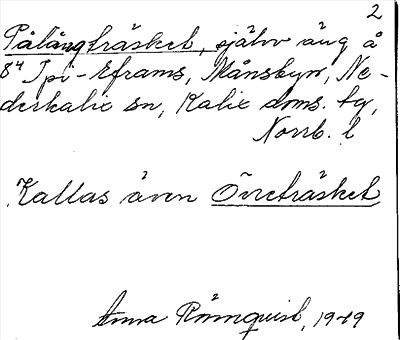 2
Pålängträsket, själv äng å
8⁴ Ipi-Eframs, Månsbyn, Ne-
derkalix sn, Kalix doms. tg,
Norrb. l
Kallas även Övreträsket
Anna Rönnquist, 1949